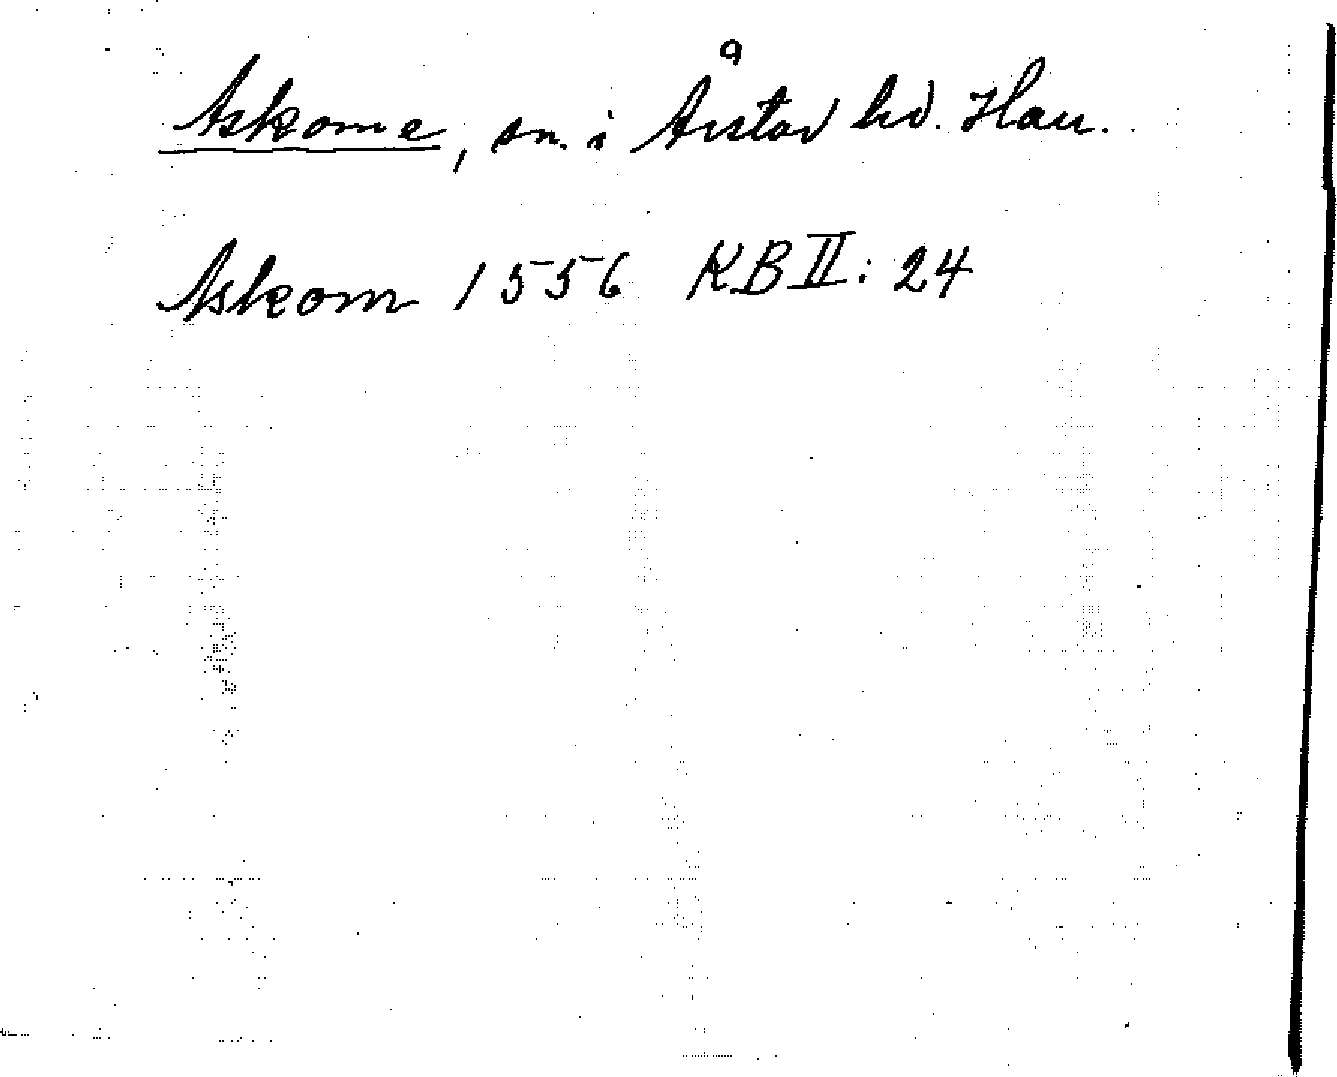 Askome, sn. i Årstad hd. Hall.
Askom 1556 KB II: 24